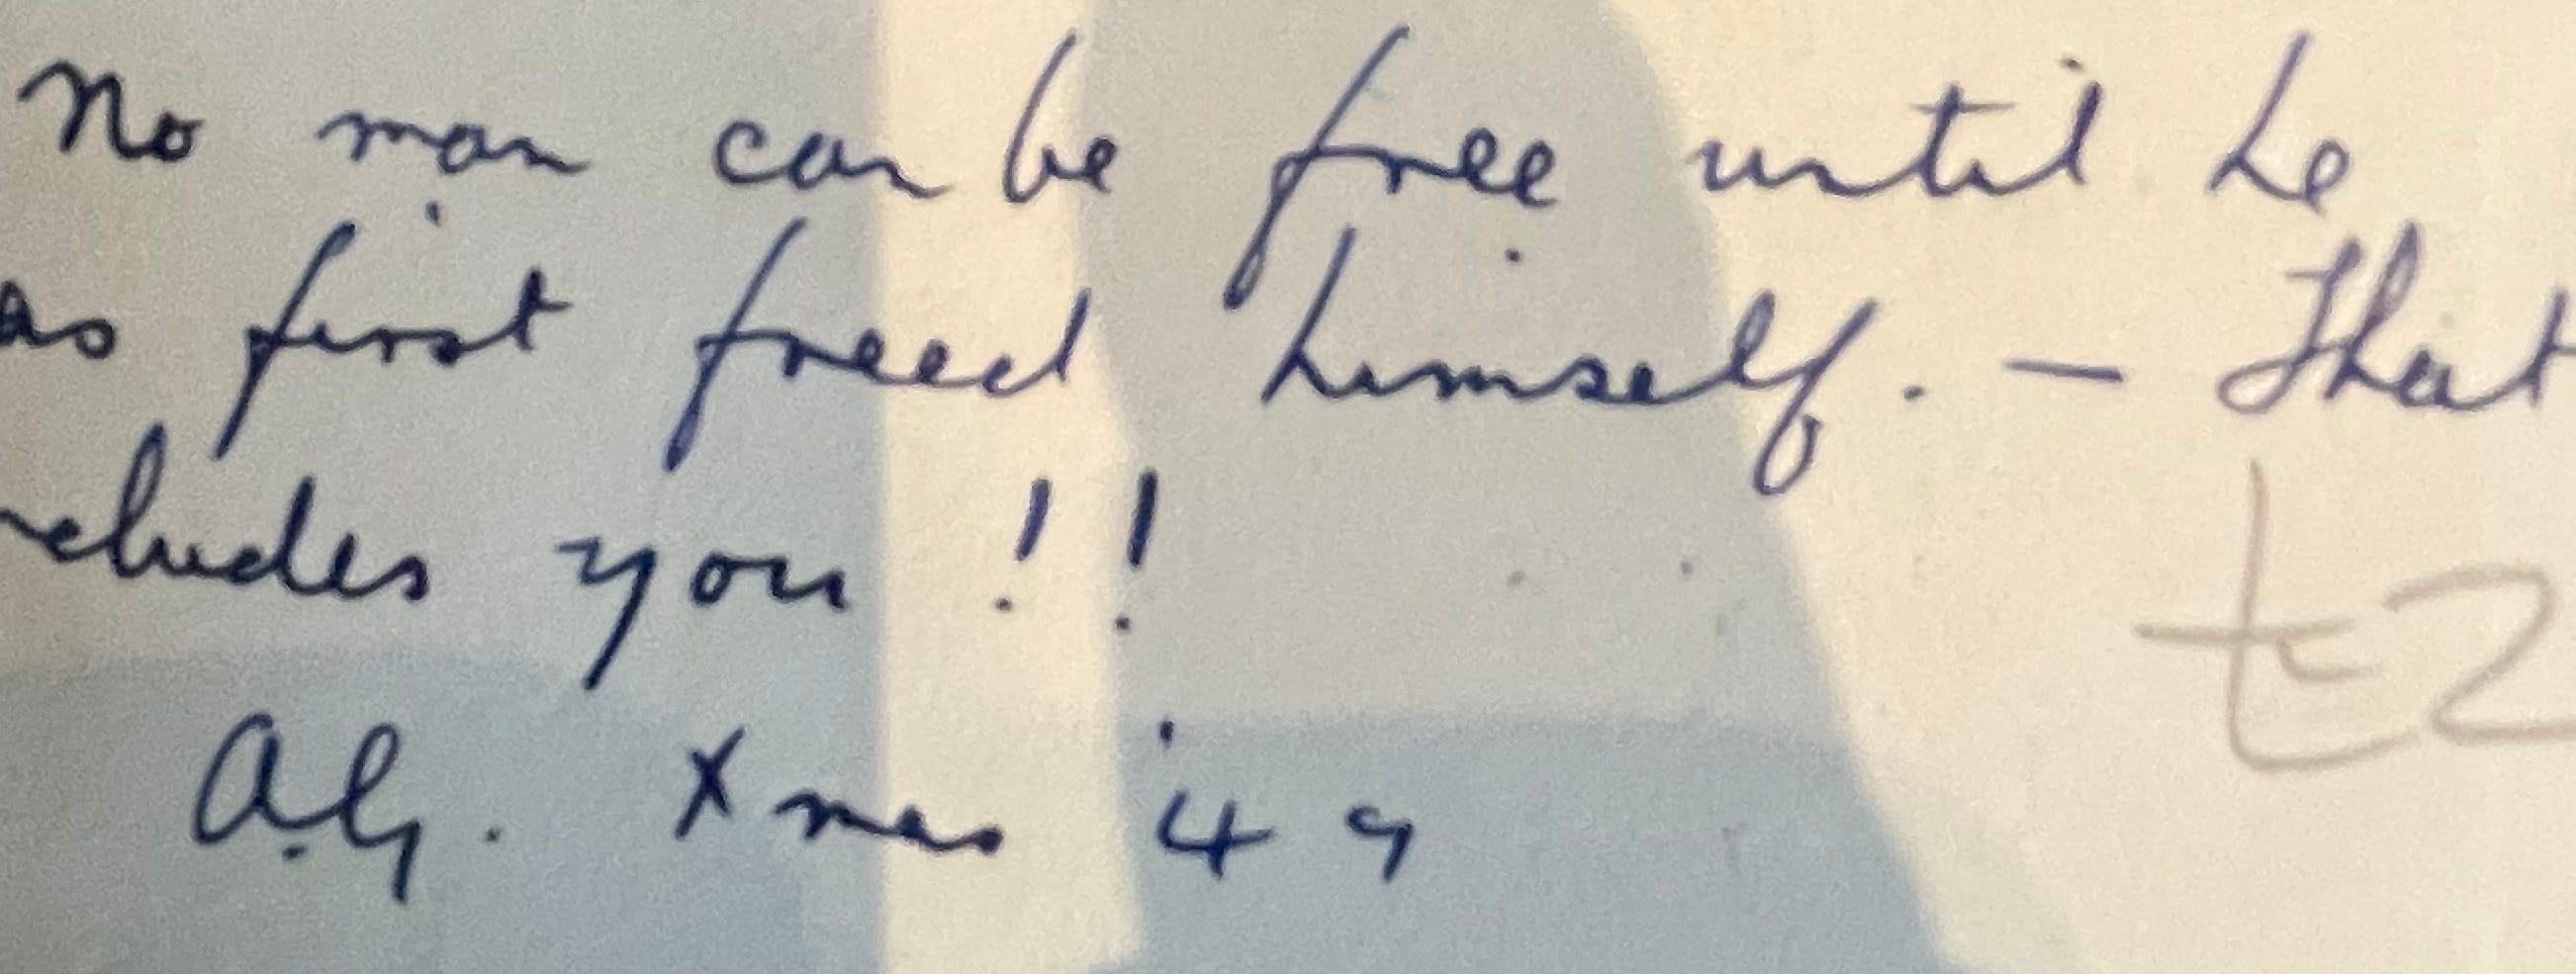 No man can be free until he
as first freed himself. — That
ncludes you !!
£2
A.G. Xmas '49